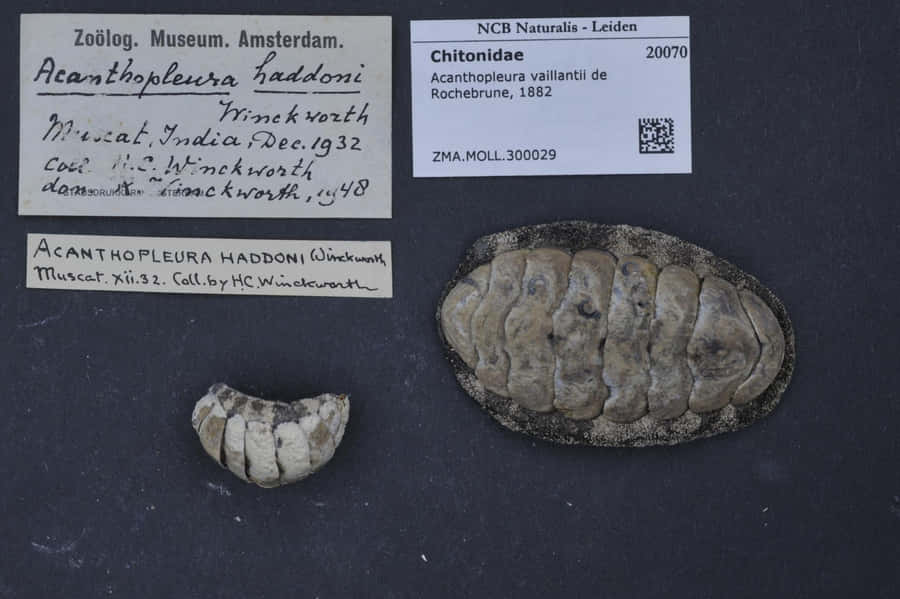 Zoölog. Museum. Amsterdam.
Acanthopleura haddoni
Winckworth
Muscat, India, Dec. 1932
Coll. H.C. Winckworth
don. Winckworth, 1948
ACANTHOPLEURA HADDONI Winckworth
Muscat. xii.32. Coll. by H.C. Winckworth
NCB Naturalis - Leiden
Chitonidae 20070
Acanthopleura vaillantii de
Rochebrune, 1882
ZMA.MOLL.300029